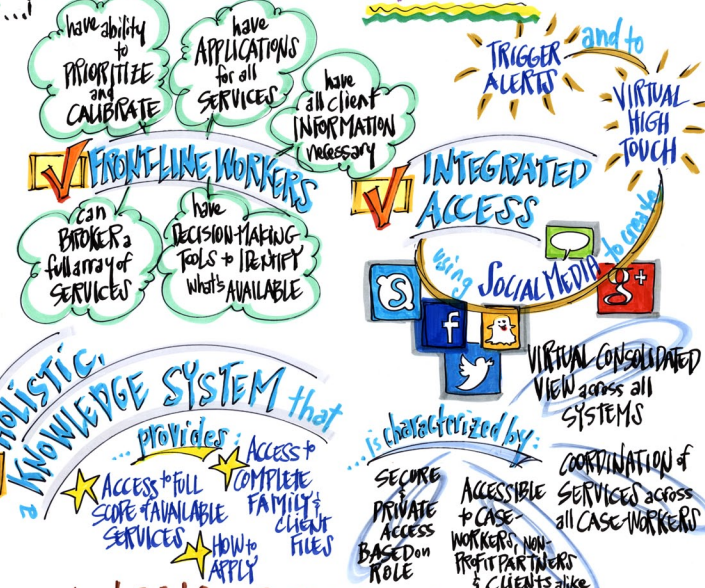 have ability
to
PRIORITIZE
and
CALIBRATE
have
APPLICATIONS
for all
SERVICES
have
all client
INFORMATION
necessary
FRONT-LINE WORKERS
can
BROKER a
full array of
SERVICES
have
DECISION-MAKING
TOOLS to IDENTIFY
what's AVAILABLE
TRIGGER
ALERTS
and to
VIRTUAL
HIGH
TOUCH
INTEGRATED
ACCESS
using SOCIAL MEDIA to create
S
f
g+
a HOLISTIC,
KNOWLEDGE SYSTEM that
...provides:
ACCESS to FULL
SCOPE of AVAILABLE
SERVICES
ACCESS to
COMPLETE
FAMILY &
CLIENT
FILES
HOW to
APPLY
...is characterized by:
VIRTUAL CONSOLIDATED
VIEW across all
SYSTEMS
SECURE
&
PRIVATE
ACCESS
BASED on
ROLE
ACCESSIBLE
to CASE-
WORKERS, NON-
PROFIT PARTNERS
& CLIENTS alike
COORDINATION of
SERVICES across
all CASE-WORKERS